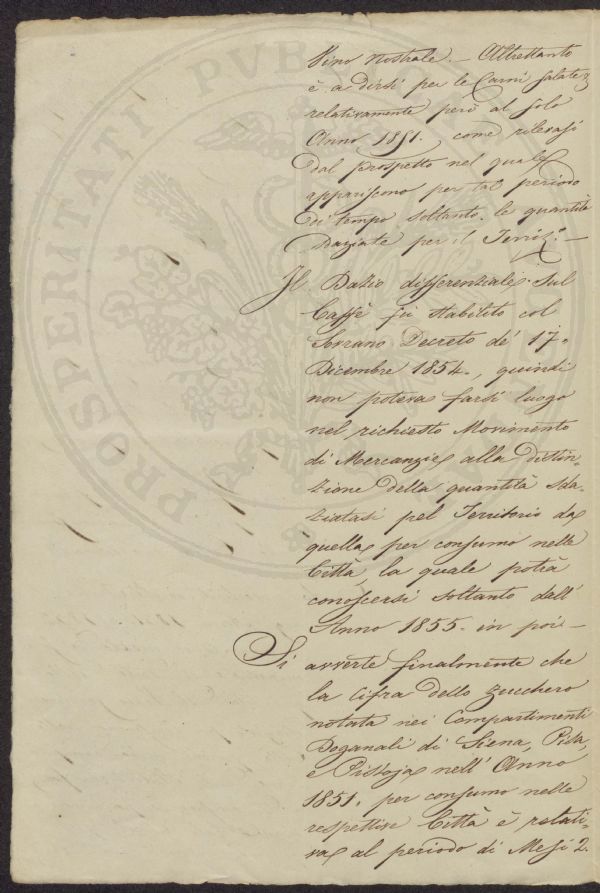 Vino nostrale. — Altrettanto
è a dirsi per le Carni salate,
relativamente però al solo
Anno 1851. come rilevasi
dal prospetto nel quale
appariscono per tal periodo
di tempo soltanto le quantità
daziate per il Territ.º —
Il Dazio differenziale sul
Caffè fu stabilito col
Sovrano Decreto de' 17.
Dicembre 1854., quindi
non poteva farsi luogo
nel richiesto Movimento
di Mercanzie alla distin-
zione della quantità sda-
ziatasi pel Territorio da
quella per consumo nelle
Città, la quale potrà
conoscersi soltanto dall'
Anno 1855. in poi —
Si avverte finalmente che
la cifra dello zucchero
notata nei Compartimenti
Doganali di Siena, Pisa,
e Pistoja nell' Anno
1851. per consumo nelle
respettive Città è relati-
va al periodo di Mesi 2.
PROSPERITATI PVBLICAE